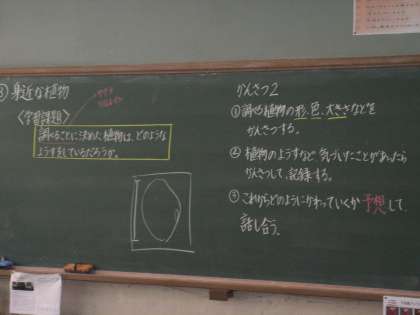 身近な植物
〈学習課題〉
調べることに決めた植物は、どのような
ようすをしているだろうか。
かんさつ2
①調べる植物の形、色、大きさなどを
かんさつする。
②植物のようすなど、気づいたことがあったら
かんさつして、記録する。
③これからどのようにかわっていくか予想して、
話し合う。